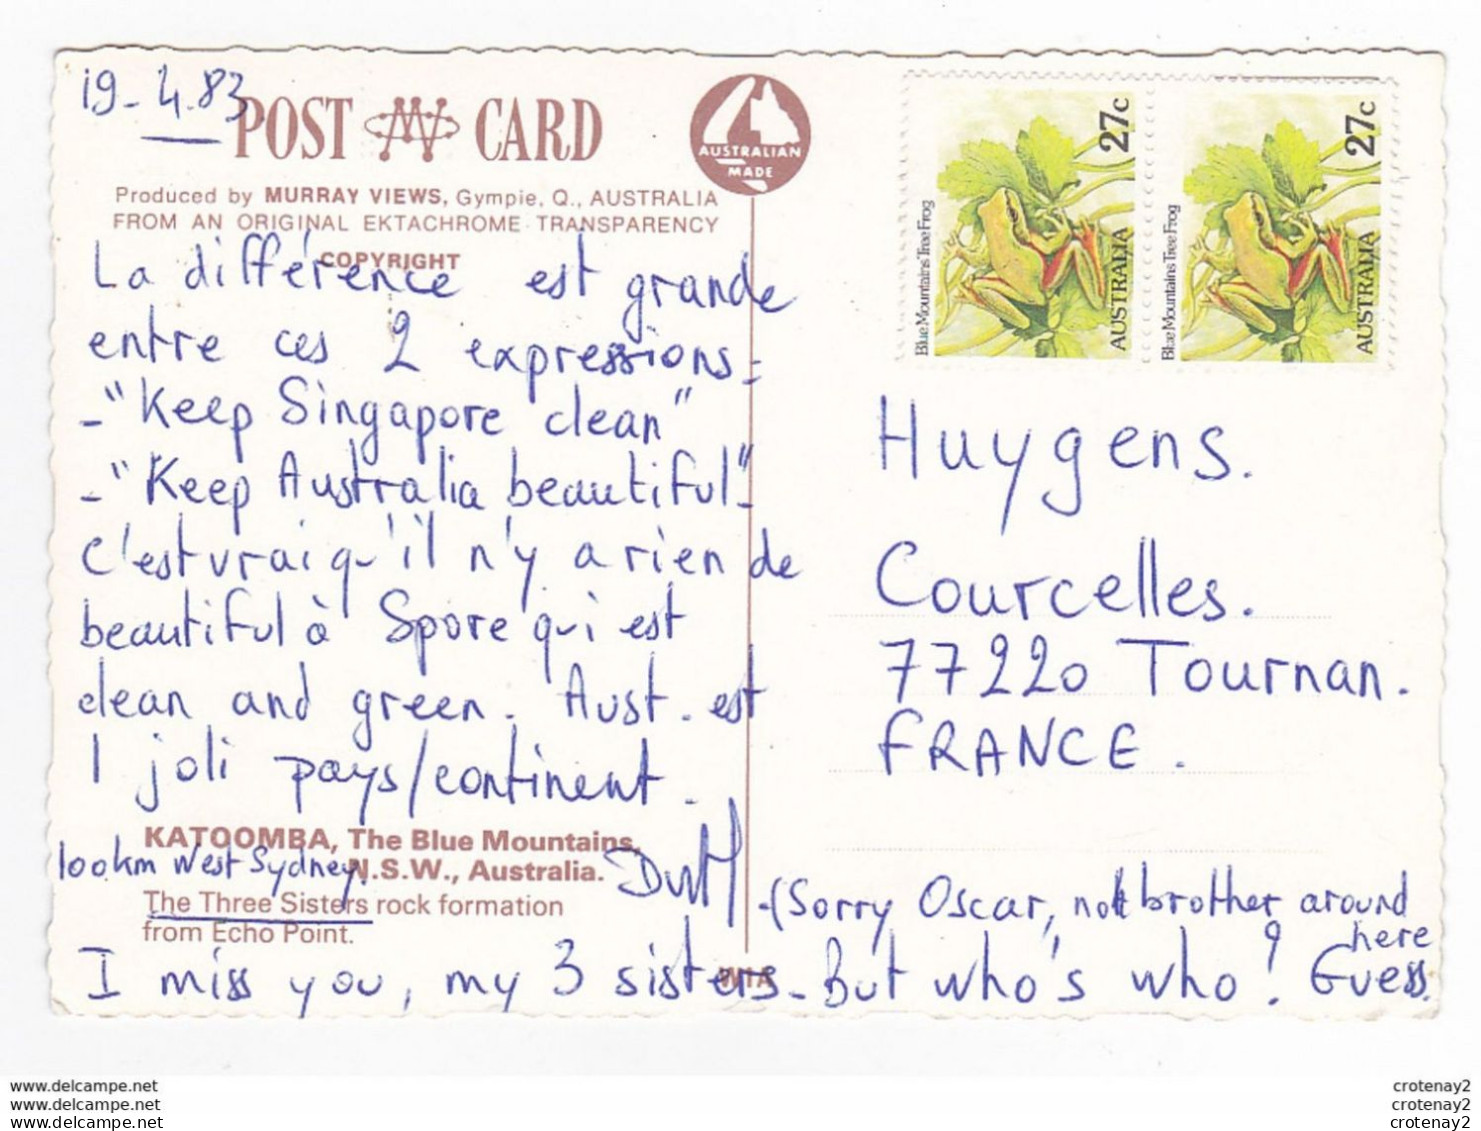 19-4.83
POST CARD
AUSTRALIAN
MADE
Produced by MURRAY VIEWS, Gympie, Q., AUSTRALIA
FROM AN ORIGINAL EKTACHROME TRANSPARENCY
COPYRIGHT
La différence est grande
entre ces 2 expressions =
- "Keep Singapore clean"
- "Keep Australia beautiful" -
C'est vrai qu'il n'y a rien de
beautiful à Spore qui est
clean and green. Aust. est
1 joli pays/continent.
KATOOMBA, The Blue Mountains,
N.S.W., Australia.
100km West Sydney.
The Three Sisters rock formation
from Echo Point.
-(Sorry Oscar, not brother around
here
I miss you, my 3 sisters - But who's who? Guess.
W1A
Blue Mountains Tree Frog
AUSTRALIA
27c
Blue Mountains Tree Frog
AUSTRALIA
27c
Huygens.
Courcelles.
77220 Tournan.
FRANCE.
www.delcampe.net
www.delcampe.net
www.delcampe.net
crotenay2
crotenay2
crotenay2